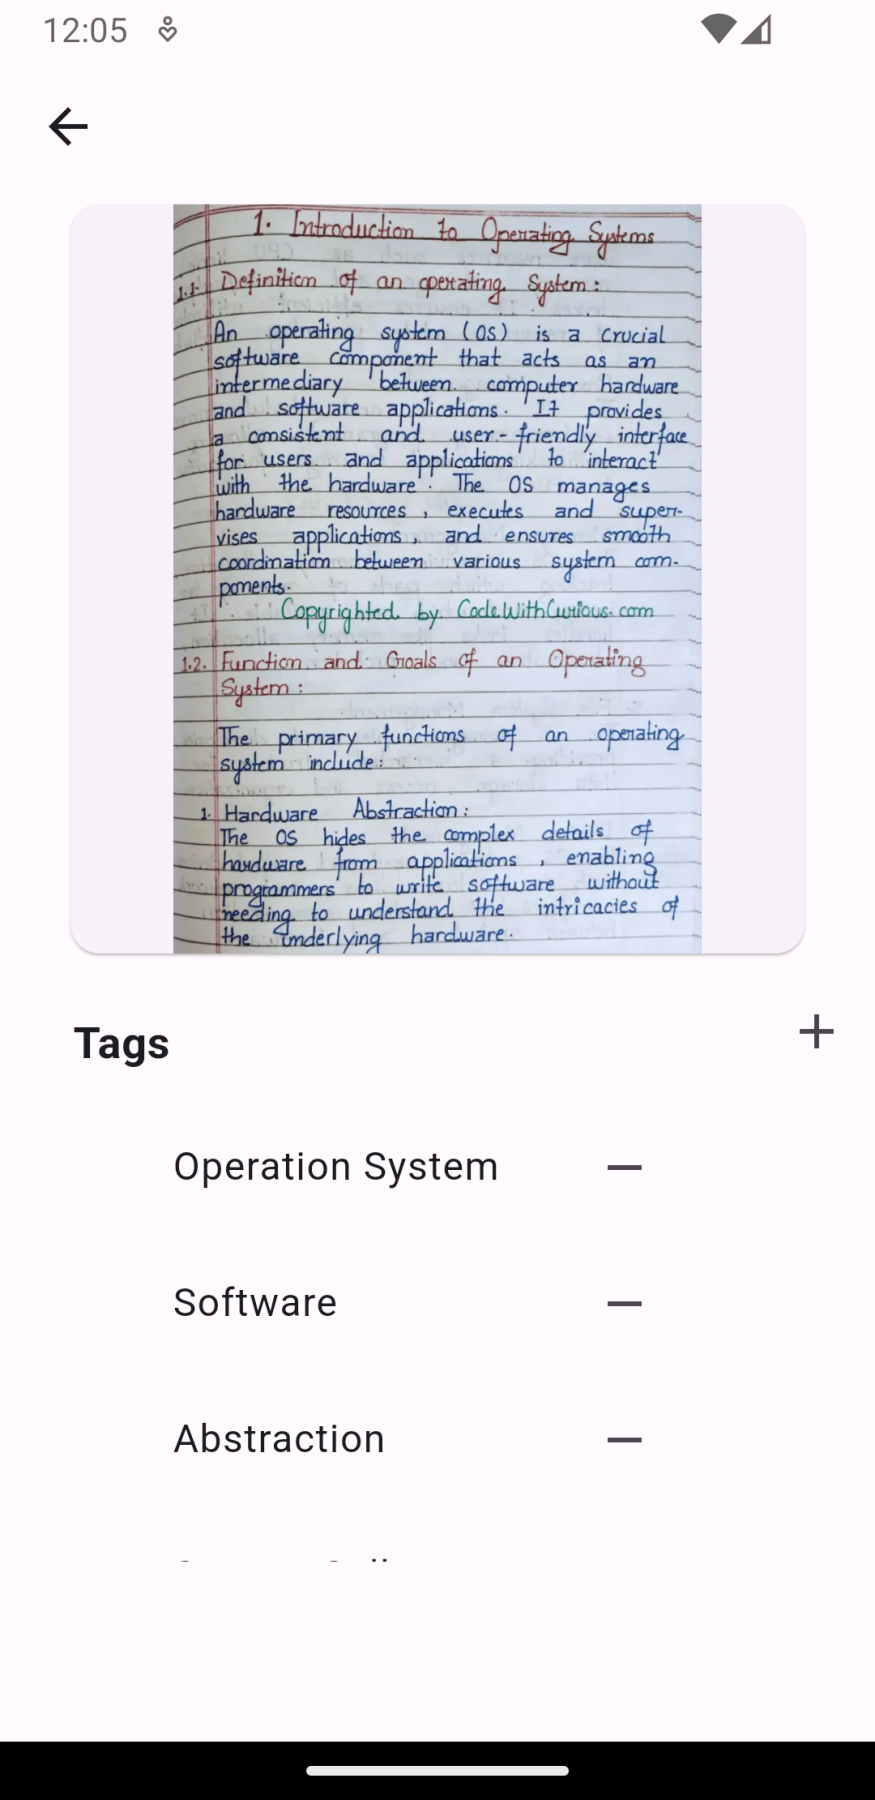 12:05
1. Introduction to Operating Systems
1.1. Definition of an operating System :
An operating system (OS) is a crucial
software component that acts as an
intermediary between computer hardware
and software applications. It provides
a consistent and user-friendly interface
for users and applications to interact
with the hardware. The OS manages
hardware resources, executes and super-
vises applications, and ensures smooth
coordination between various system com-
ponents.
Copyrighted by CodeWithCurious.com
1.2. Function and Goals of an Operating
System :
The primary functions of an operating
system include:
1. Hardware Abstraction :
The OS hides the complex details of
hardware from applications, enabling
programmers to write software without
needing to understand the intricacies of
the underlying hardware.
Tags
Operation System
Software
Abstraction